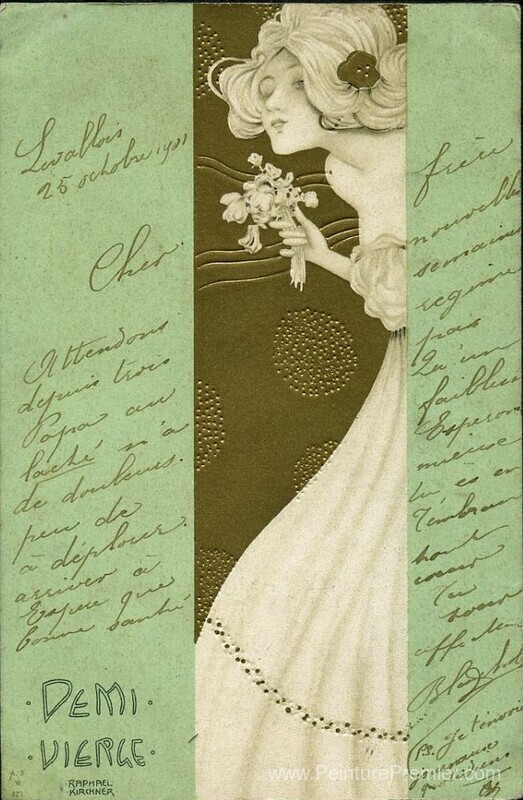 Levallois
25 octobre 1901
Cher
Attendons
depuis trois
Papa au
laché n'a
de douleurs.
peu de
à déplorer.
arriver à
Espère que
bonne santé
frère
nouvelle
semaines
régime
pais
Qu'un
faiblesse
Esperon
mieux
tu es en
T'embrass
tout
coeur
Ta
soeur
affectu
PS. Je t'envoie
DEMI
VIERGE
RAPHAEL
KIRCHNER
www.PeinturePremier.com